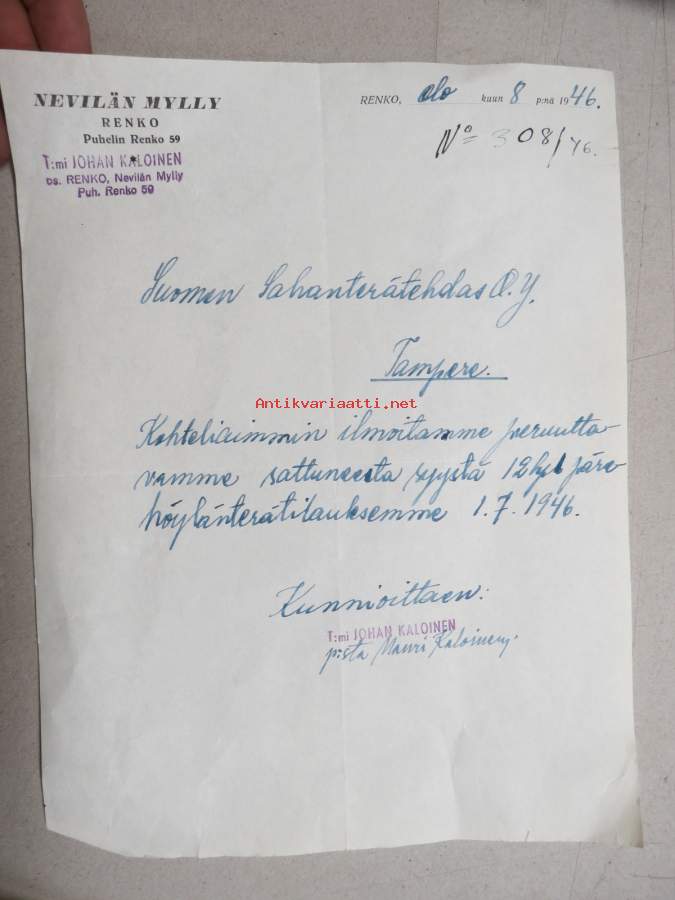 NEVILÄN MYLLY
RENKO
Puhelin Renko 59
T:mi JOHAN KALOINEN
os. RENKO, Nevilän Mylly
Puh. Renko 59
RENKO, elo kuun 8 p:nä 1946.
No 308/46.
Suomen Sahanterätehdas O.Y.
Tampere.
Antikvariaatti.net
Kohteliaimmin ilmoitamme peruutta-
vamme sattuneesta syystä 12 kpl päre
höylänterätilauksemme 1.7.1946.
Kunnioittaen:
T:mi JOHAN KALOINEN
p:sta Mauri Kaloinen.